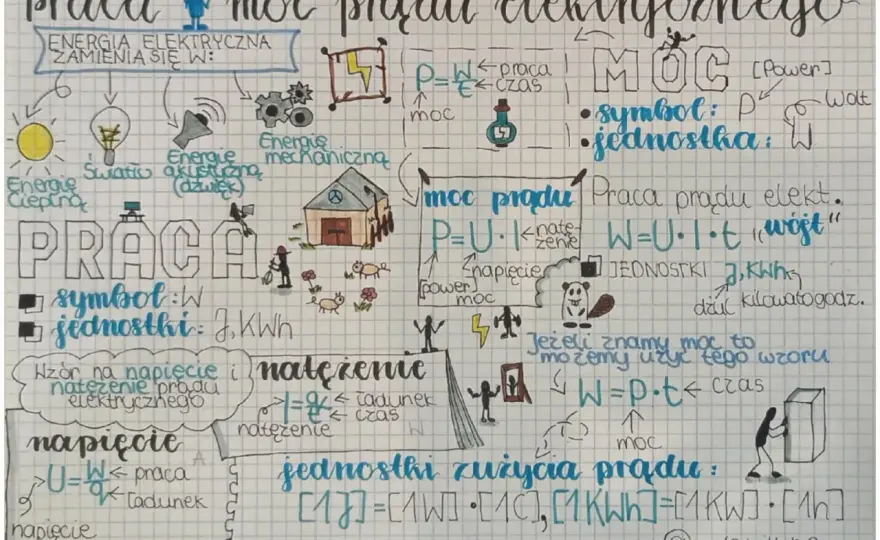 praca i moc prądu elektrycznego
ENERGIA ELEKTRYCZNA
ZAMIENIA SIĘ W:
Energię
Cieplną
Światło
Energię
akustyczną
(dźwięk)
Energię
mechaniczną
P=W/t
praca
czas
moc
MOC [Power]
symbol: P
jednostka: W
Wat
PRACA
symbol: W
jednostki: J, KWh
moc prądu
P=U·I
natę-
żenie
napięcie
[power]
moc
Praca prądu elekt.
W=U·I·t "wójt"
JEDNOSTKI J, KWh
dżul kilowatogodz.
Jeżeli znamy moc to
możemy użyć tego wzoru
W=P·t czas
moc
Wzór na napięcie i
natężenie prądu
elektrycznego
natężenie
I=q/t
ładunek
czas
natężenie
napięcie
U=W/q
praca
ładunek
napięcie
jednostki zużycia prądu:
[1J]=[1W]·[1C], [1KWh]=[1KW]·[1h]